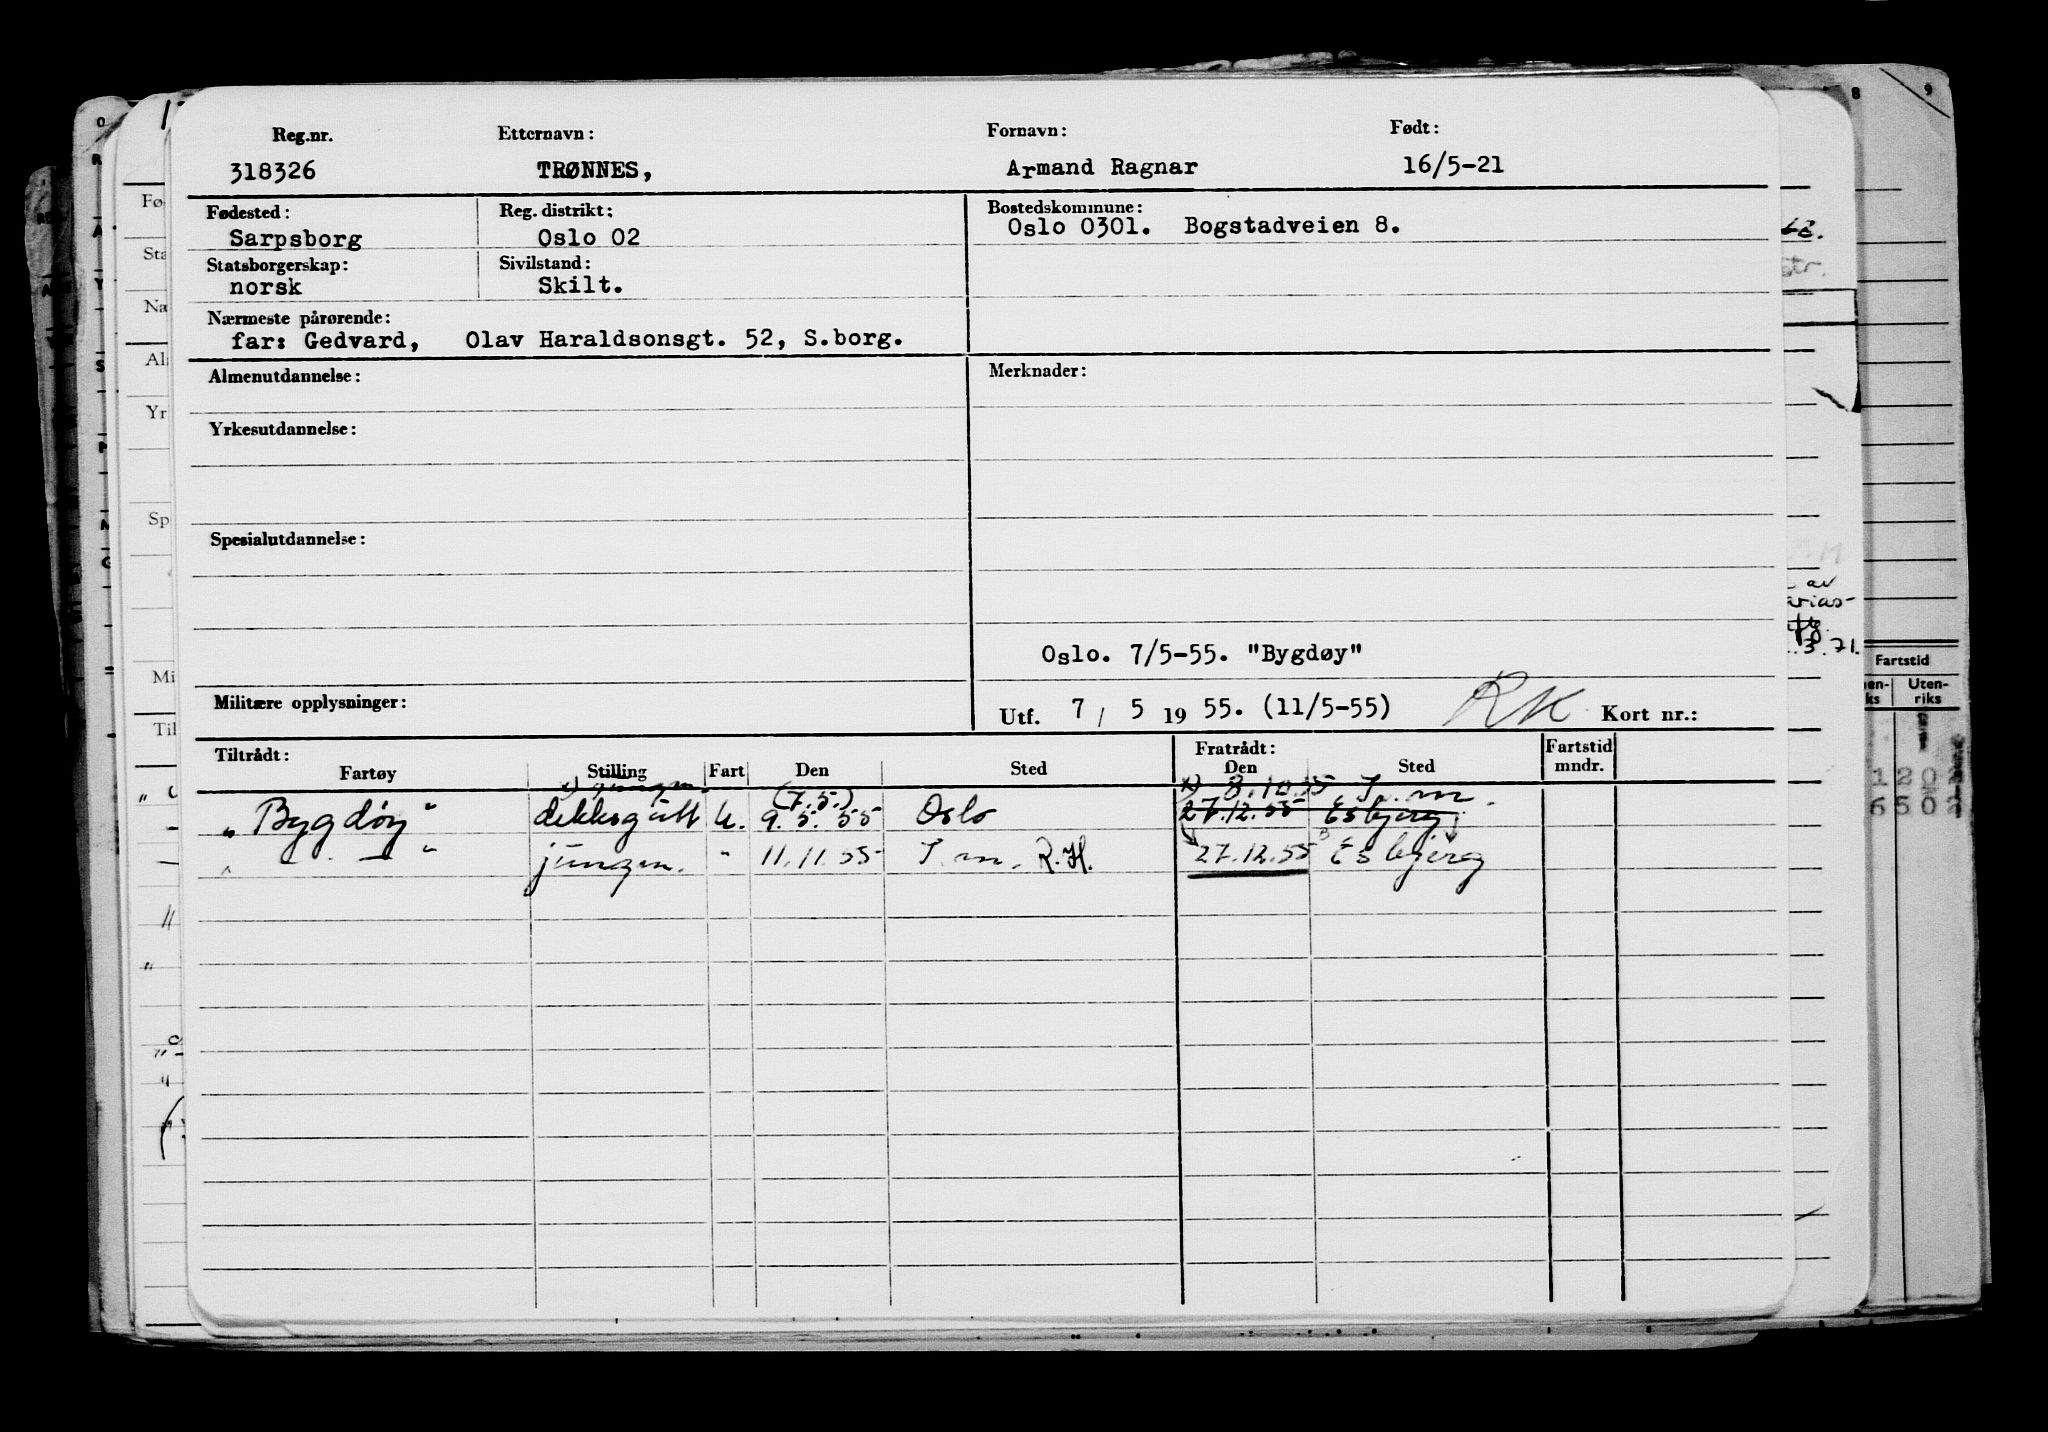 Reg.nr. Etternavn: Fornavn: Født:
318326 TRØNNES, Armand Ragnar 16/5-21
Fødested: Reg. distrikt: Bostedskommune:
Sarpsborg Oslo 02 Oslo 0301. Bogstadveien 8.
Statsborgerskap: Sivilstand:
norsk Skilt.
Nærmeste pårørende:
far: Gedvard, Olav Haraldsonsgt. 52, S.borg.
Almenutdannelse: Merknader:
Yrkesutdannelse:
Spesialutdannelse:
Oslo. 7/5-55. "Bygdøy"
Militære opplysninger: Utf. 7 / 5 19 55. (11/5-55) RK Kort nr.:
Tiltrådt: Fratrådt: Fartstid
Fartøy Stilling Fart Den Sted Den Sted mndr.
x) jungm. (7.5.) x) 8.10.55 I. m.
"Bygdøy" dekksgutt u. 9.5.55 Oslo 27.12.55 Esbjerg
" — " jungm. " 11.11.55 I. m. R.H. 27.12.55 Esbjerg
Fartstid
Uten-
riks